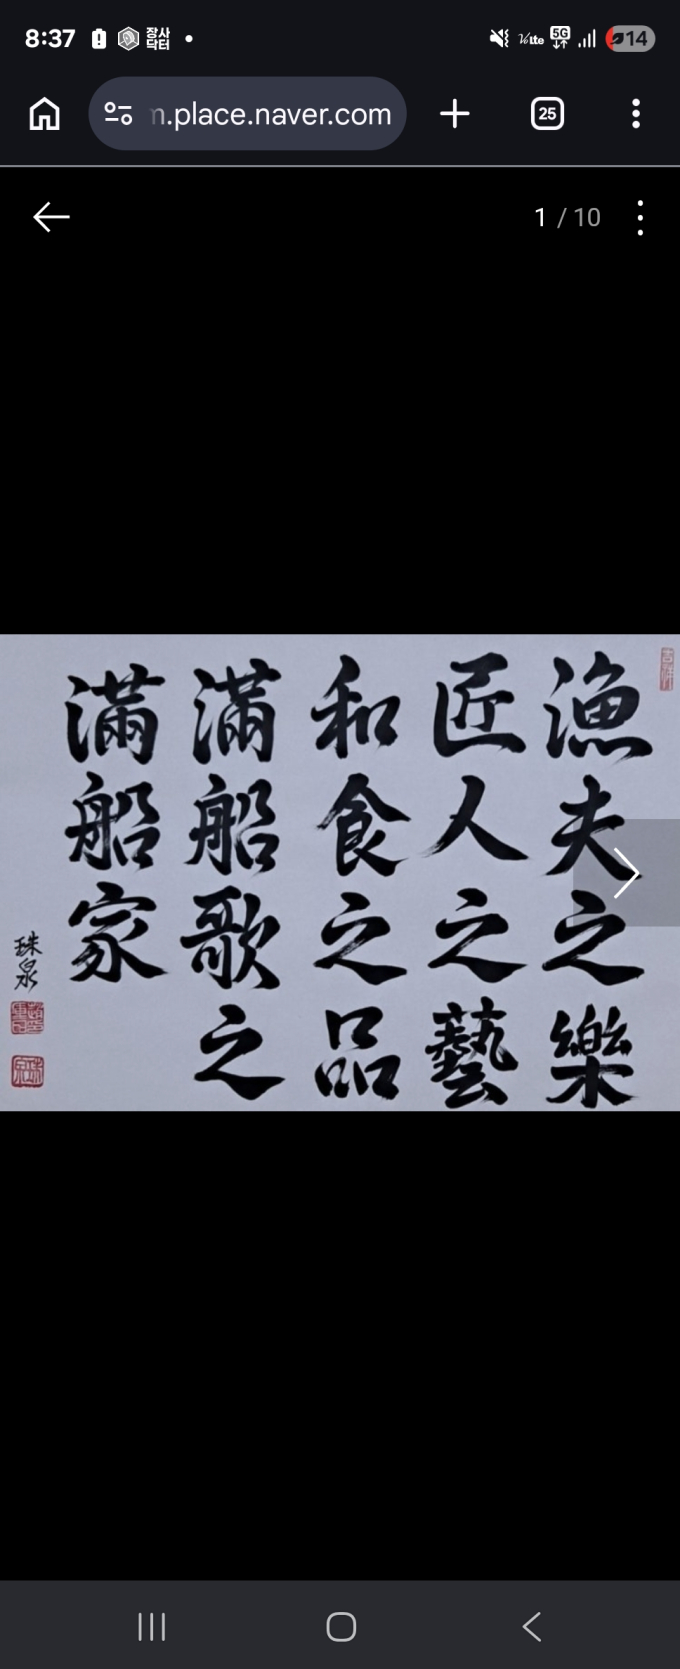 8:37
장사
닥터
Vo
lte
5G
14
n.place.naver.com
25
1 / 10
漁夫之樂
匠人之藝
和食之品
滿船歌之
滿船家
珠泉